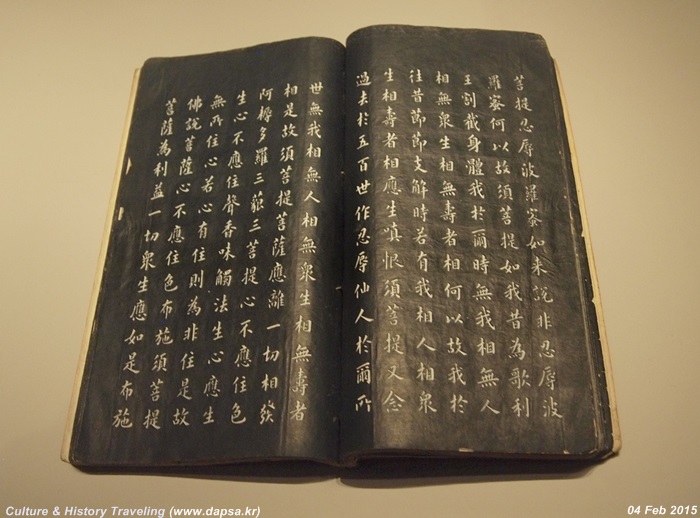 菩提忍辱波羅蜜如来說非忍辱波
羅蜜何以故須菩提如我昔為歌利
王割截身體我於爾時無我相無人
相無衆生相無壽者相何以故我於
往昔節節支解時若有我相人相衆
生相壽者相應生嗔恨須菩提又念
過去於五百世作忍辱仙人於爾所
世無我相無人相無衆生相無壽者
相是故須菩提菩薩應離一切相發
阿耨多羅三藐三菩提心不應住色
生心不應住聲香味觸法生心應生
無所住心若心有住則為非住是故
佛說菩薩心不應住色布施須菩提
菩薩為利益一切衆生應如是布施
Culture & History Traveling (www.dapsa.kr)
04 Feb 2015